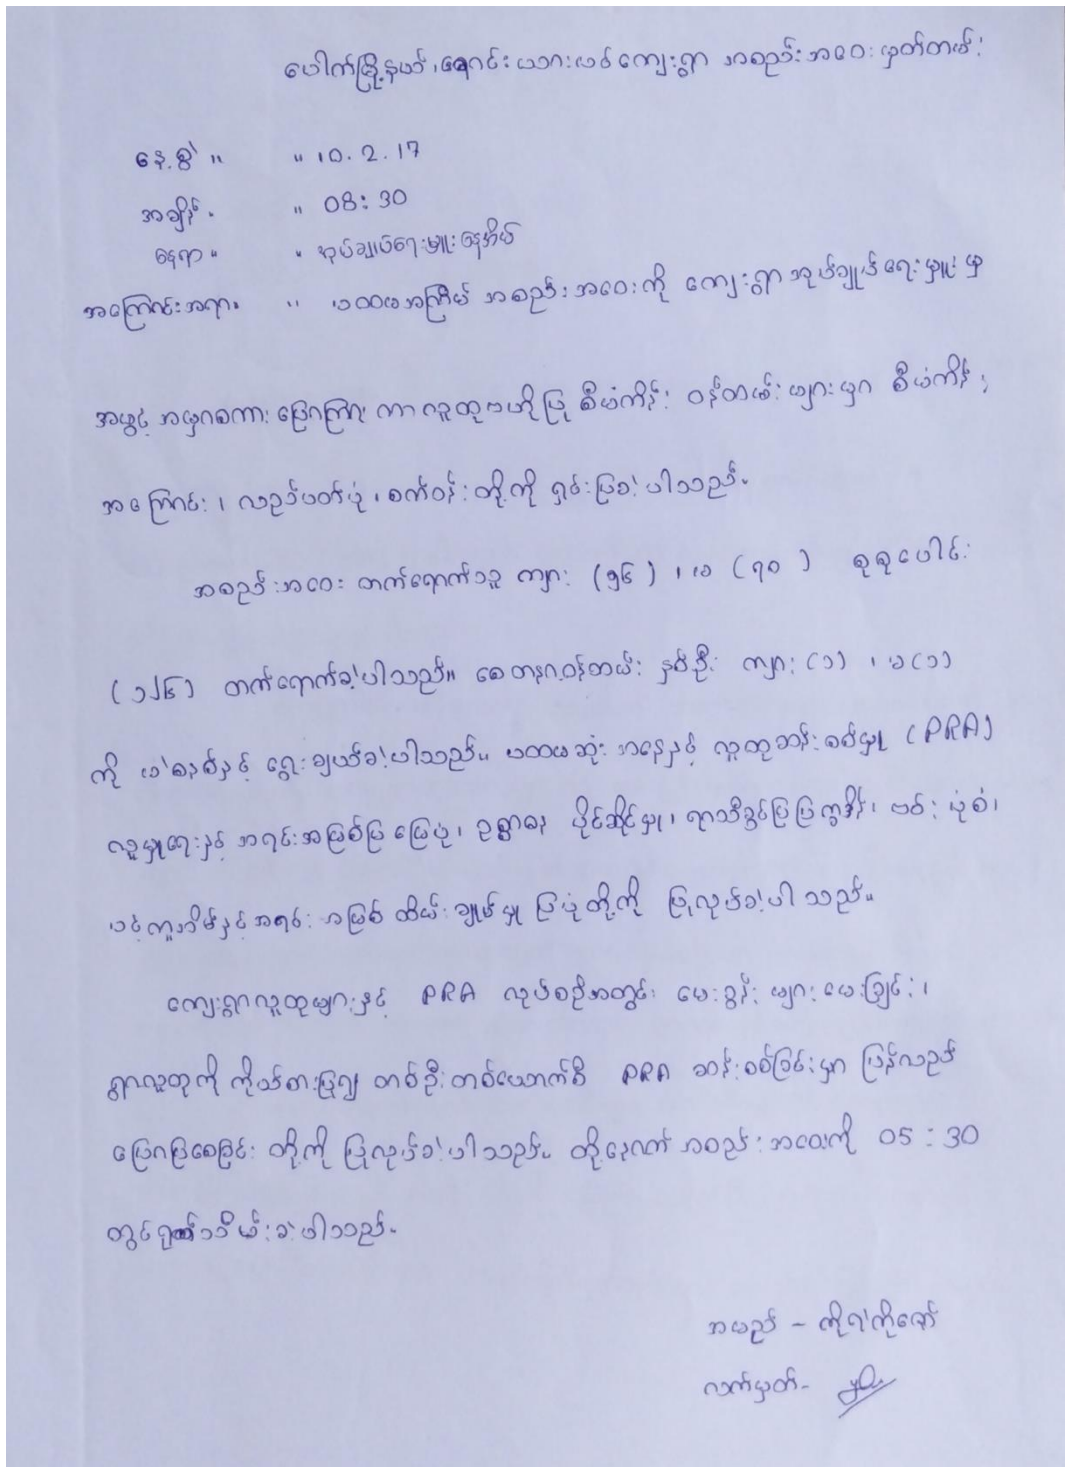 ပေါက်မြို့နယ်၊ ချောင်းယားယင်ကျေးရွာ အစည်းအဝေးမှတ်တမ်း
နေ့စွဲ ။ ။ 10.2.17
အချိန် ။ ။ 08:30
နေရာ ။ ။ အုပ်ချုပ်ရေးမှူးနေအိမ်
အကြောင်းအရာ ။ ။ ပထမအကြိမ် အစည်းအဝေးကို ကျေးရွာအုပ်ချုပ်ရေးမှူးမှ
အဖွင့်အမှာစကားပြောကြားကာ လူထုဗဟိုပြုစီမံကိန်း ဝန်ထမ်းများမှာ စီမံကိန်း
အကြောင်း၊ လည်ပတ်ပုံ၊ စက်ဝန်းတို့ကို ရှင်းပြခဲ့ပါသည်။
အစည်းအဝေး တက်ရောက်သူ ကျား (၅၆)၊ မ (၇၀) စုစုပေါင်း
(၁၂၆) တက်ရောက်ခဲ့ပါသည်။ စေတနာ့ဝန်ထမ်း နှစ်ဦး ကျား (၁)၊ မ (၁)
ကို မဲစနစ်နှင့် ရွေးချယ်ခဲ့ပါသည်။ ပထမဆုံးအနေနှင့် လူထုဆန်းစစ်မှု (PRA)
လူမှုရေးနှင့် အရင်းအမြစ်ပြမြေပုံ၊ ဥစ္စာဓန ပိုင်ဆိုင်မှု၊ ရာသီခွင်ပြပြက္ခဒိန်၊ ဗင်းပုံစံ၊
ပင့်ကူအိမ်နှင့်အရင်းအမြစ် ထိန်းချုပ်မှု ပြပုံတို့ကို ပြုလုပ်ခဲ့ပါသည်။
ကျေးရွာလူထုများနှင့် PRA လုပ်စဉ်အတွင်း မေးခွန်းများမေးခြင်း၊
ရွာလူထုကို ကိုယ်စားပြု၍ တစ်ဦးတစ်ယောက်စီ PRA ဆန်းစစ်ခြင်းမှာ ပြန်လည်
ပြောပြစေခြင်း တို့ကို ပြုလုပ်ခဲ့ပါသည်။ ထို့နောက် အစည်းအဝေးကို 05:30
တွင်ရုပ်သိမ်းခဲ့ပါသည်။
အမည် - ကိုရဲကိုဇော်
လက်မှတ်-